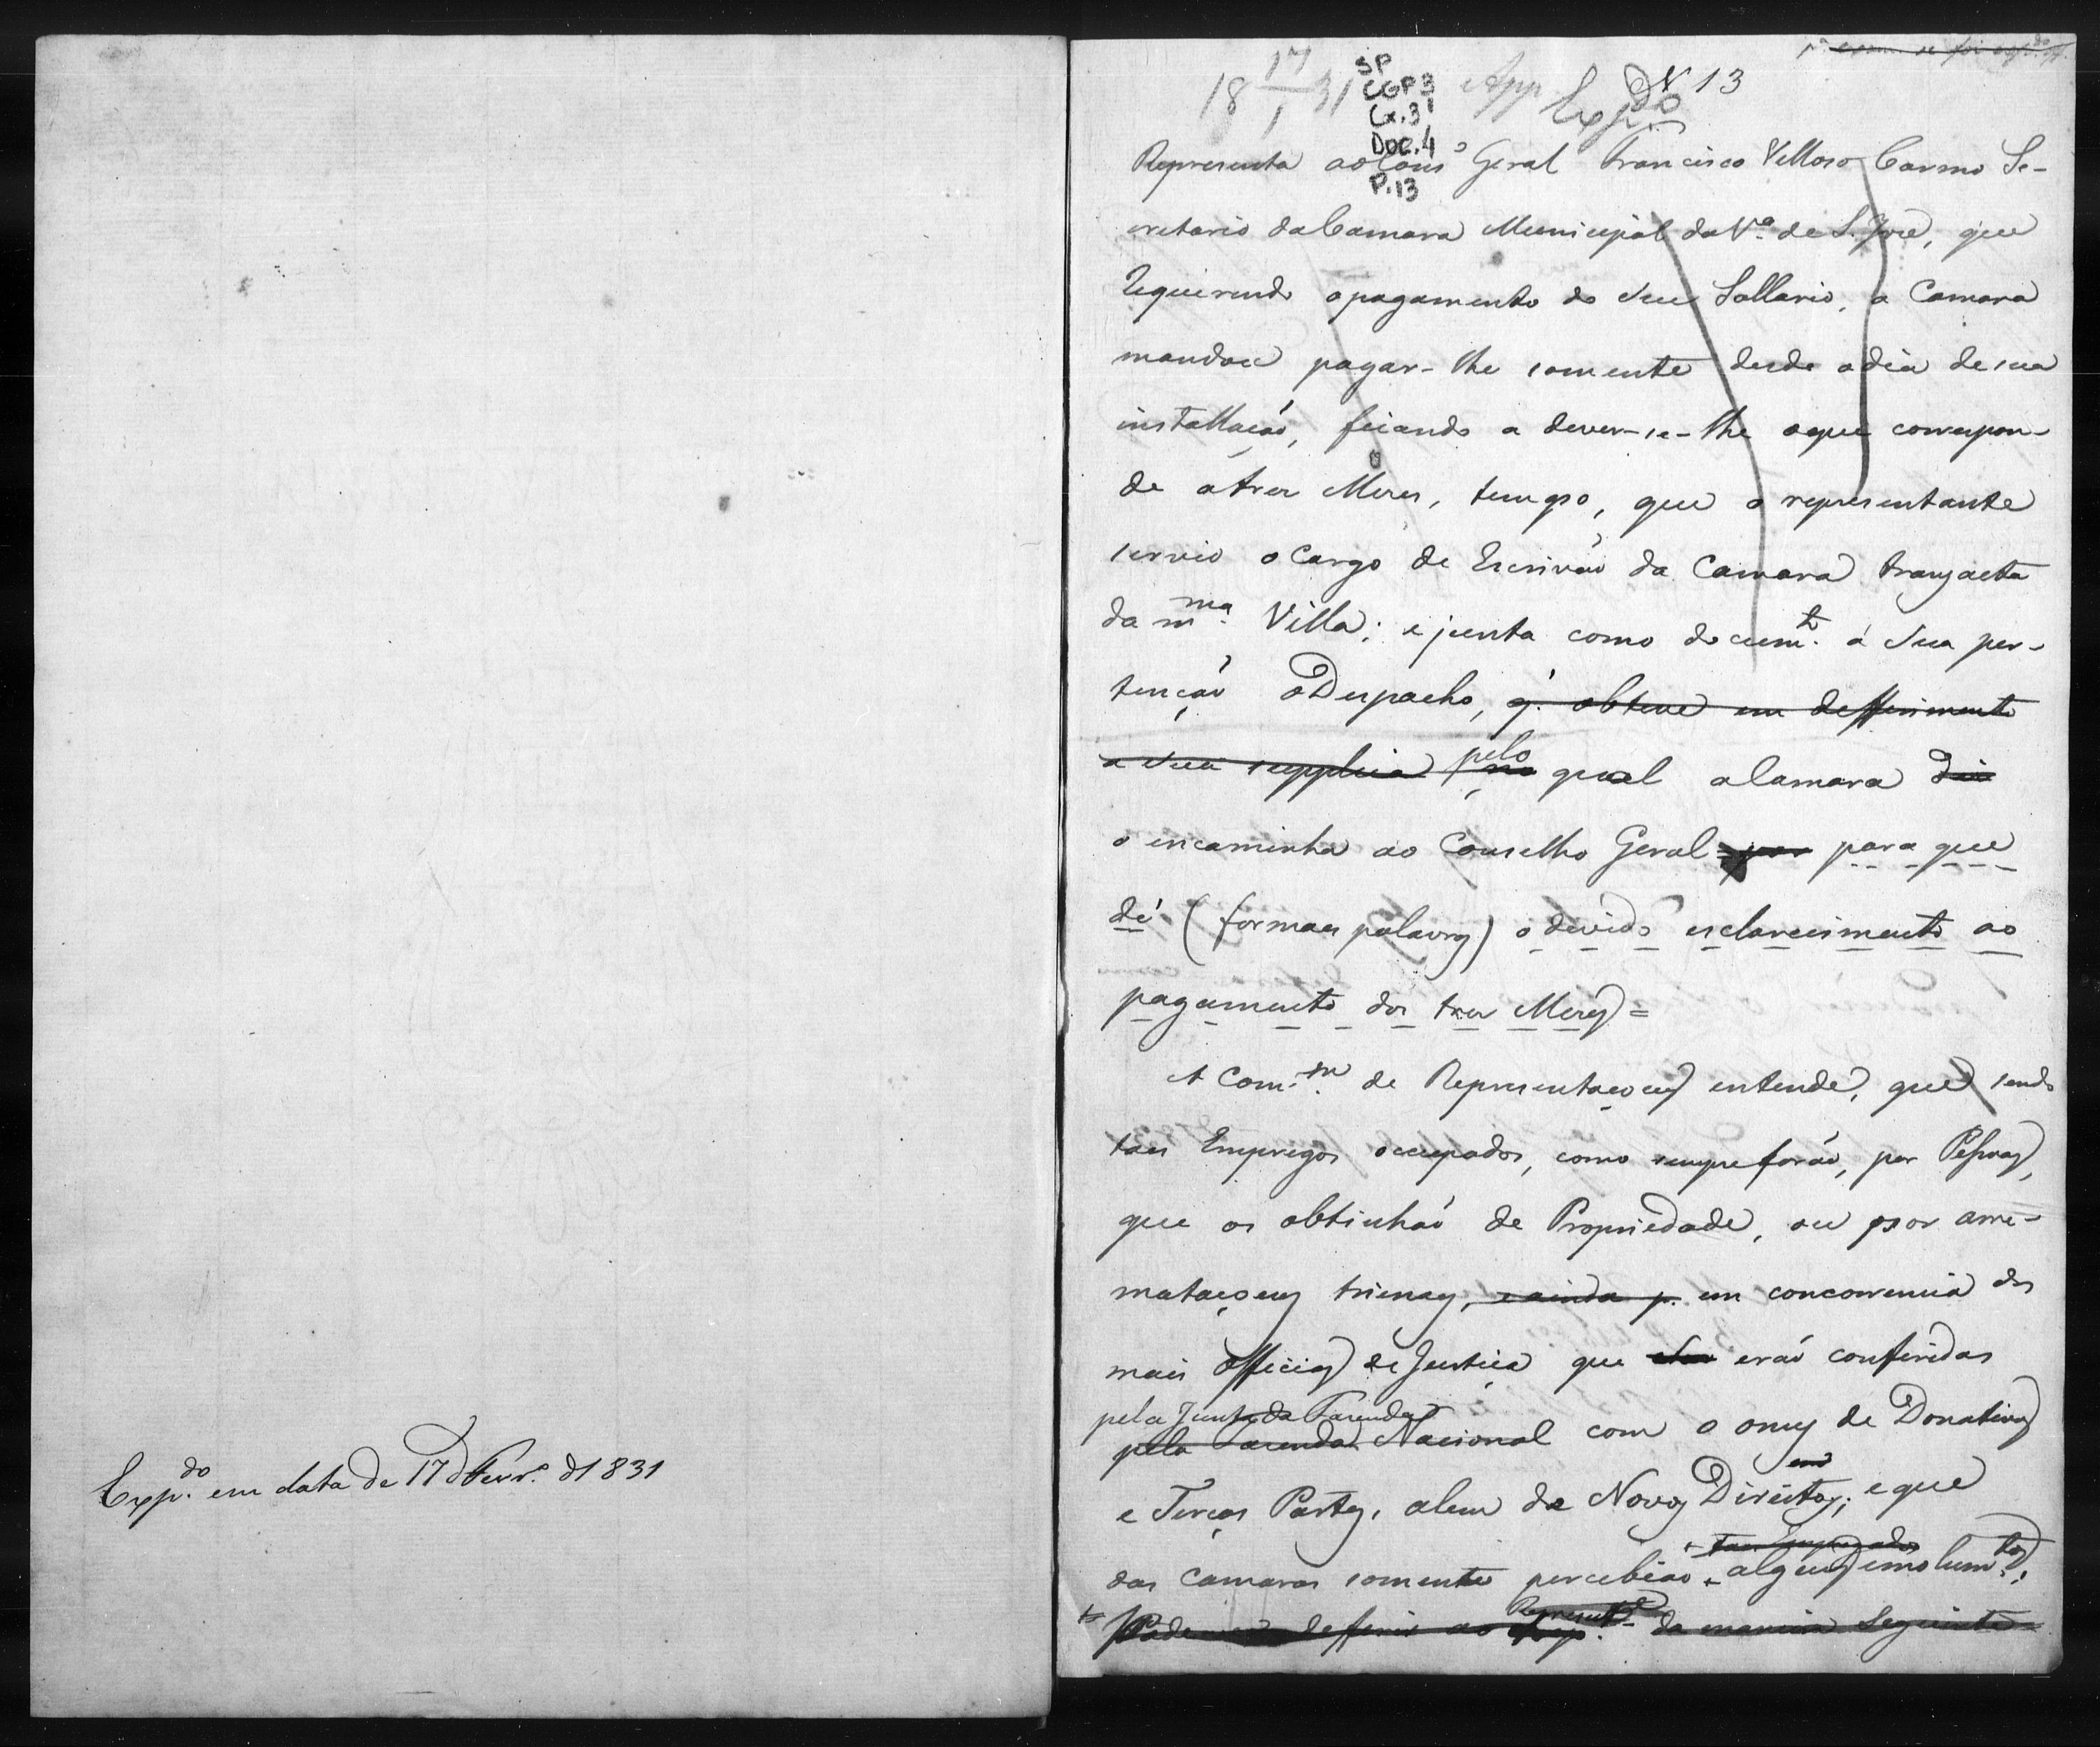 Exp.do em data de 17 d Fevr.º d 1831
18 17/1 31
SP
CGP3
Cx.31
Doc.4
P.13
App
Expdo
Nº 13
Representa ao Cons.º Geral Francisco Velloso Carmo Se-
cretario da Camara Municipal da V.ª de S. José, que
Requerendo o pagamento do seu Sallario, a Camara
mandou pagar-lhe somente desde o dia de sua
installação, ficando a dever-se-lhe o que correspon-
de a tres Meses, tempo, que o representante
servio o Cargo de Escrivão da Camara tranzacta
da m.ma Villa; e junta como docum.to á sua per-
tenção o Despacho, q. obteve em defferimento
a sua supplica pelo no qual a Camara
o encaminha ao Conselho Geral = por para que
dê (formaes palavras) o devido esclarecimento ao
pagamento dos tres Meses =
A Com.m de Representaçoens entende, que sendo
taes Empregos occupados, como sempre forão, por Pessoas,
que os obtinhão de Propriedade, ou por arre-
mataçoens trienaes, e ainda p. em concorrencia dos
mais Officios de Justiça que erão conferidas
pela Junta da Fazenda
pela Fazenda Nacional com o onus de Donativos
e Terças Partes, alem de Novos Direitos; e que
taes Empregados
das Camaras somente percebião alguns emolum.tos;
Represent.e
defferir ao da maneira Seguinte